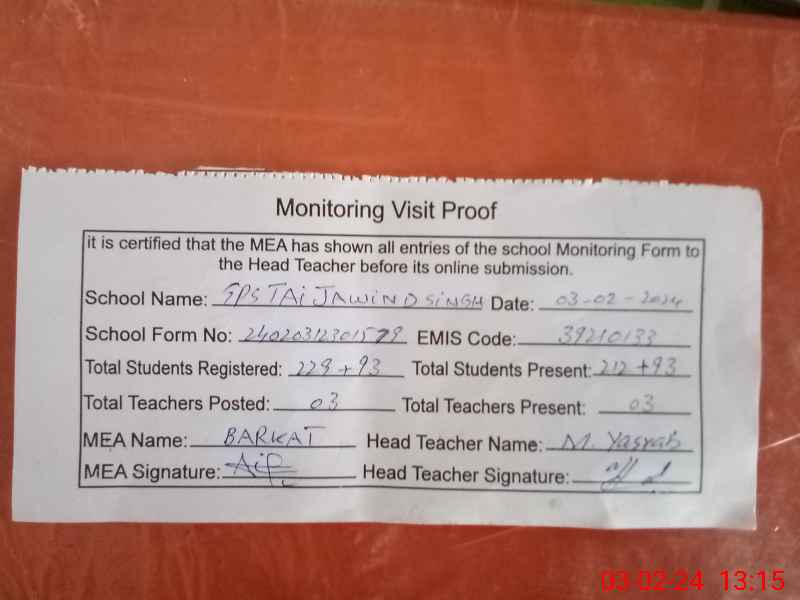 Monitoring Visit Proof
it is certified that the MEA has shown all entries of the school Monitoring Form to
the Head Teacher before its online submission.
School Name: GPS TAI JAWIND SINGH Date: 03-02-2024
School Form No: 2402031230157 EMIS Code: 39210133
Total Students Registered: 229+93 Total Students Present: 212+93
Total Teachers Posted: 03 Total Teachers Present: 03
MEA Name: BARKAT Head Teacher Name: M. Yasrab
MEA Signature: Head Teacher Signature:
03-02-24 13:15